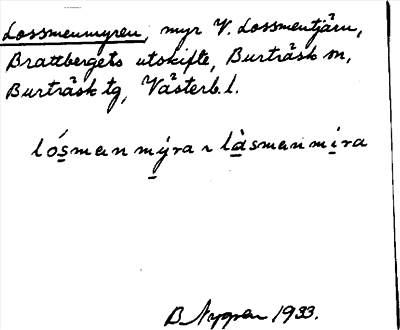 Lossmenmyren, myr V. Lossmentjärn,
Brattbergets utskifte, Burträsk sn,
Burträsk tg, Västerb. l.
lós̠manmý̠ra ~ là̠smanmi̠ra
B Nygren 1933.